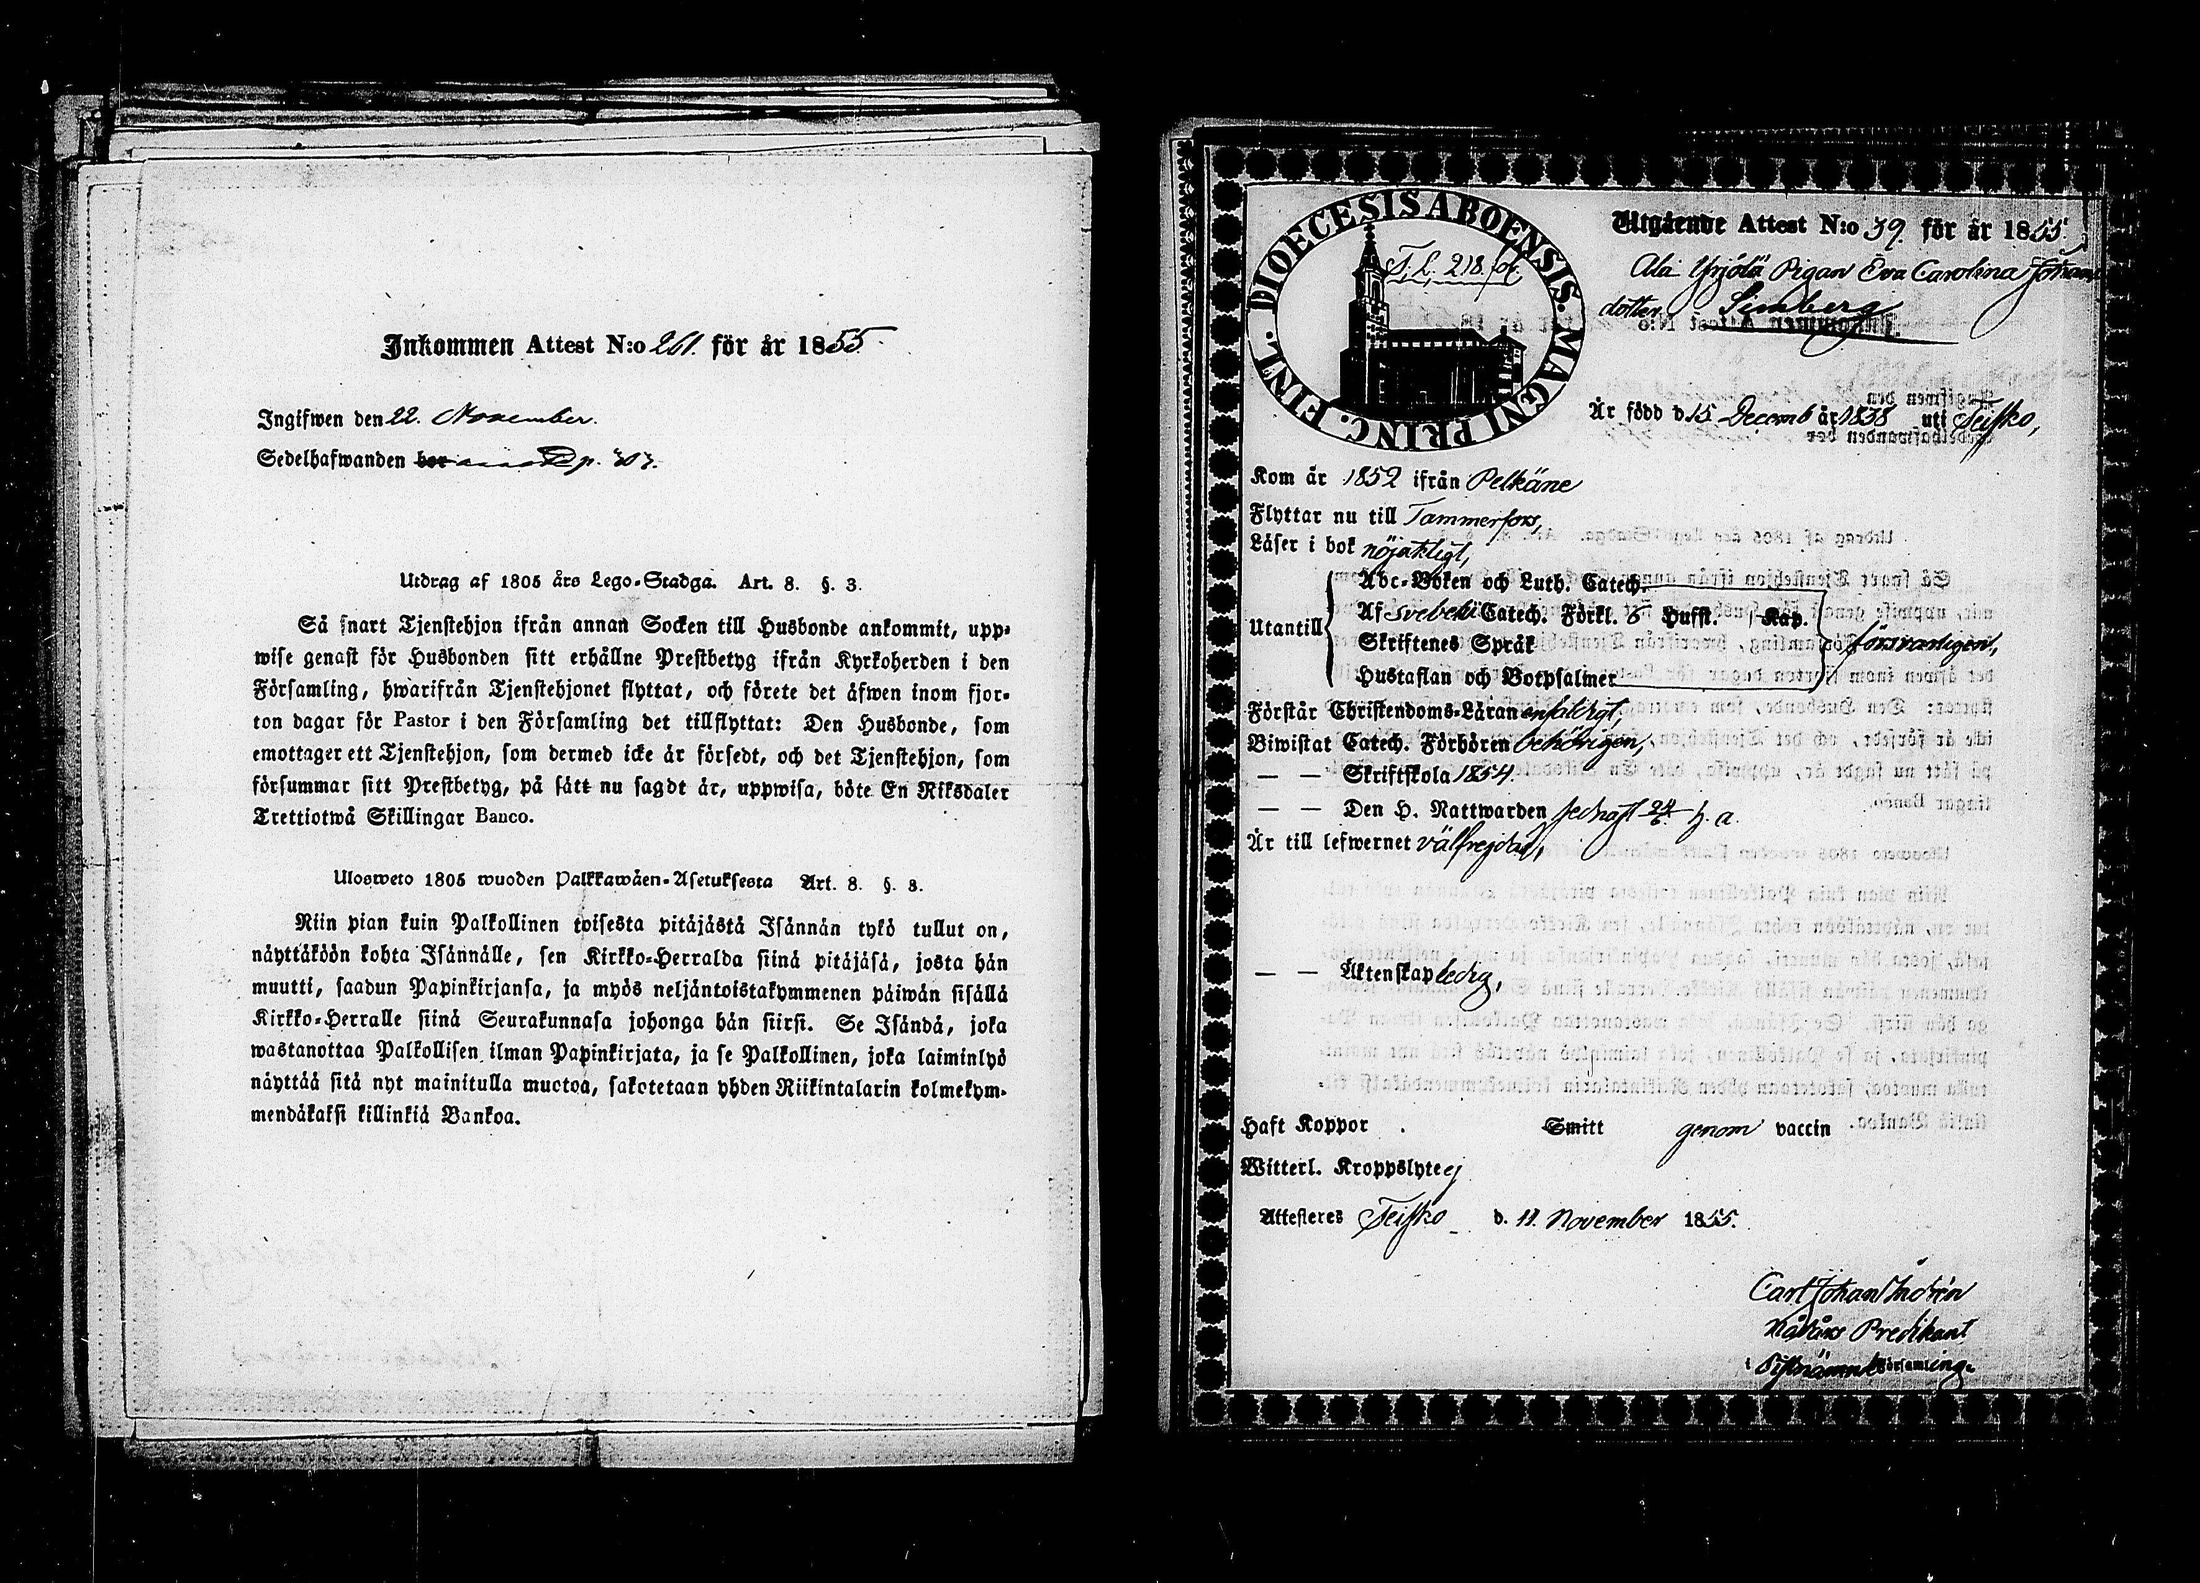 Inkommen Attest N:o 261. för år 1855.
Ingifwen den 22. November.
Sedelhafwanden bor p. 303.
Utdrag af 1805 års Lego-Stadga. Art. 8. §. 3.
Så snart Tjenstehjon ifrån annan Socken till Husbonde ankommit, upp-
wise genast för Husbonden sitt erhållne Prestbetyg ifrån Kyrkoherden i den
Församling, hwarifrån Tjenstehjonet flyttat, och förete det äfwen inom fjor-
ton dagar för Pastor i den Församling det tillflyttat: Den Husbonde, som
emottager ett Tjenstehjon, som dermed icke är försedt, och det Tjenstehjon, som
försummar sitt Prestbetyg, på sätt nu sagdt är, uppwisa, böte En Riksdaler
Trettiotwå Skillingar Banco.
Ulosweto 1805 wuoden Palkkawäen-Asetuksesta Art. 8. §. 3.
Niin pian kuin Palkollinen toisesta pitäjästä Isännän tykö tullut on,
näyttäköön kohta Isännälle, sen Kirkko-Herralda siinä pitäjäsä, josta hän
muutti, saadun Papinkirjansa, ja myös neljäntoistakymmenen päiwän sisällä
Kirkko-Herralle siinä Seurakunnasa johonga hän siirsi. Se Isändä, joka
wastanottaa Palkollisen ilman Papinkirjata, ja se Palkollinen, joka laiminlyö
näyttää sitä nyt mainitulla muotoa, sakotetaan yhden Riikintalarin kolmekym-
mendäkaksi killinkiä Bankoa.
DIOECESIS ABOENSIS. MAGNI PRINC. FINL.
T. L. 218.
Utgående Attest N:o 39. för år 1855.
Ala Yrjölä Pigan Eva Carolina Johans
dotter Simberg
Är född d 15 Decemb år 1838 uti Teisko,
Kom år 1852 ifrån Pelkäne
Flyttar nu till Tammerfors,
Läser i bok nöjaktigt,
Abc-Boken och Luth. Catech.
Utantill Af Svebelii Catech. Förkl. 6 Hufst. Kap.
Skriftenes Språk försvarligen,
Hustaflan och Botpsalmer
Förstår Christendoms-Läran enfaldigt,
Biwistat Catech. Förhören behörigen,
— — Skriftskola 1854.
— — Den H. Nattwarden sednast 24/6 h. a.
Är till lefwernet välfrejdad,
— — Äktenskap ledig,
Haft Koppor Smitt genom vaccin
Witterl. Kroppslyte ej
Attesteres Teisko d. 11 November 1855.
Carl Johan
Nådårs Predikant
i Församling.